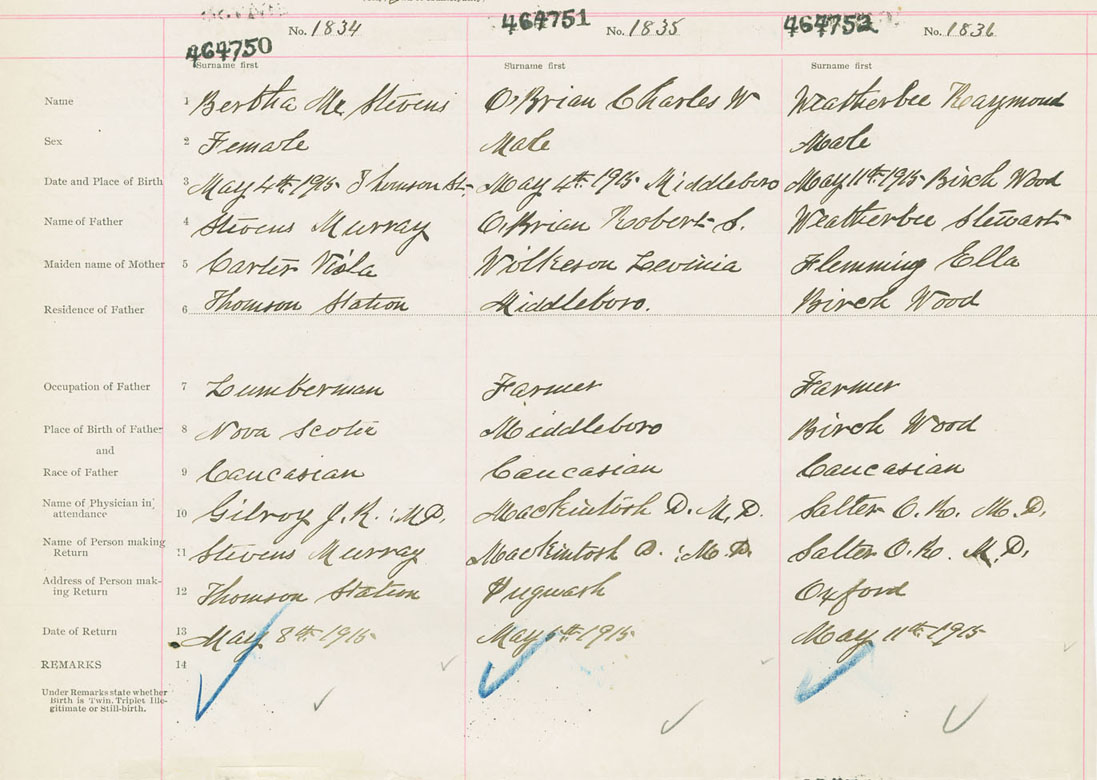 No. 1834 No. 1835 No. 1836
464750 464751 464752
Surname first Surname first Surname first
Name 1 Bertha Mc Stevens O'Brian Charles W Weatherbee Raymond
Sex 2 Female Male Male
Date and Place of Birth 3 May 4th 1915 Thomson St. May 4th 1915 Middleboro May 11th 1915 Birch Wood
Name of Father 4 Stevens Murray O'Brian Robert S. Weatherbee Stewart
Maiden name of Mother 5 Carter Viola Wilkeson Levinia Flemming Ella
Residence of Father 6 Thomson Station Middleboro. Birch Wood
Occupation of Father 7 Lumberman Farmer Farmer
Place of Birth of Father 8 Nova Scotia Middleboro Birch Wood
and
Race of Father 9 Caucasian Caucasian Caucasian
Name of Physician in
attendance 10 Gilroy J. R. M.D. Mackintosh D. M.D. Salter O. R. M.D.
Name of Person making
Return 11 Stevens Murray Mackintosh D. M.D. Salter O. R. M.D.
Address of Person mak-
ing Return 12 Thomson Station Pugwash Oxford
Date of Return 13 May 8th 1915 May 1915 May 11th 1915
REMARKS 14
Under Remarks state whether
Birth is Twin, Triplet Ille-
gitimate or Still-birth.